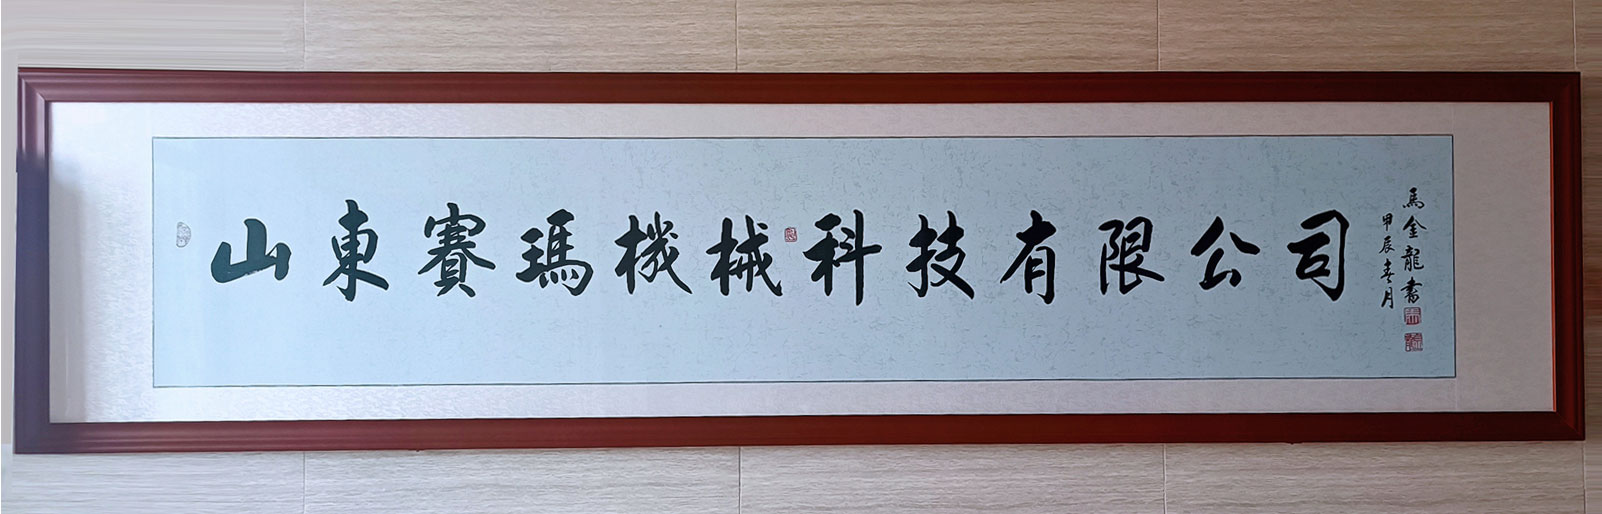 山東賽瑪機械科技有限公司
甲辰春月
馬金龍書